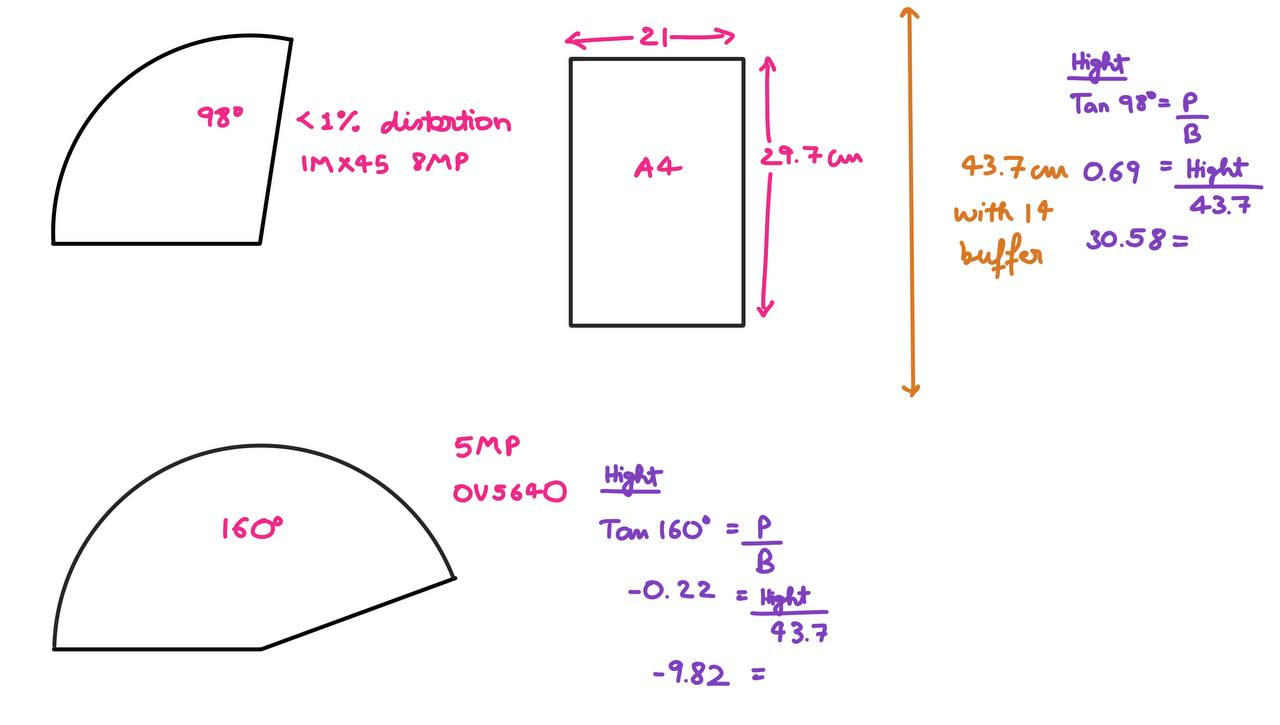 98°
<1% distortion
IMX45 8MP
21
A4
29.7 cm
43.7 cm
with 14
buffer
Hight
Tan 98° = P
B
0.69 = Hight
43.7
30.58 =
160°
5MP
OV5640
Hight
Tan 160° = P
B
-0.22 = Hight
43.7
-9.82 =